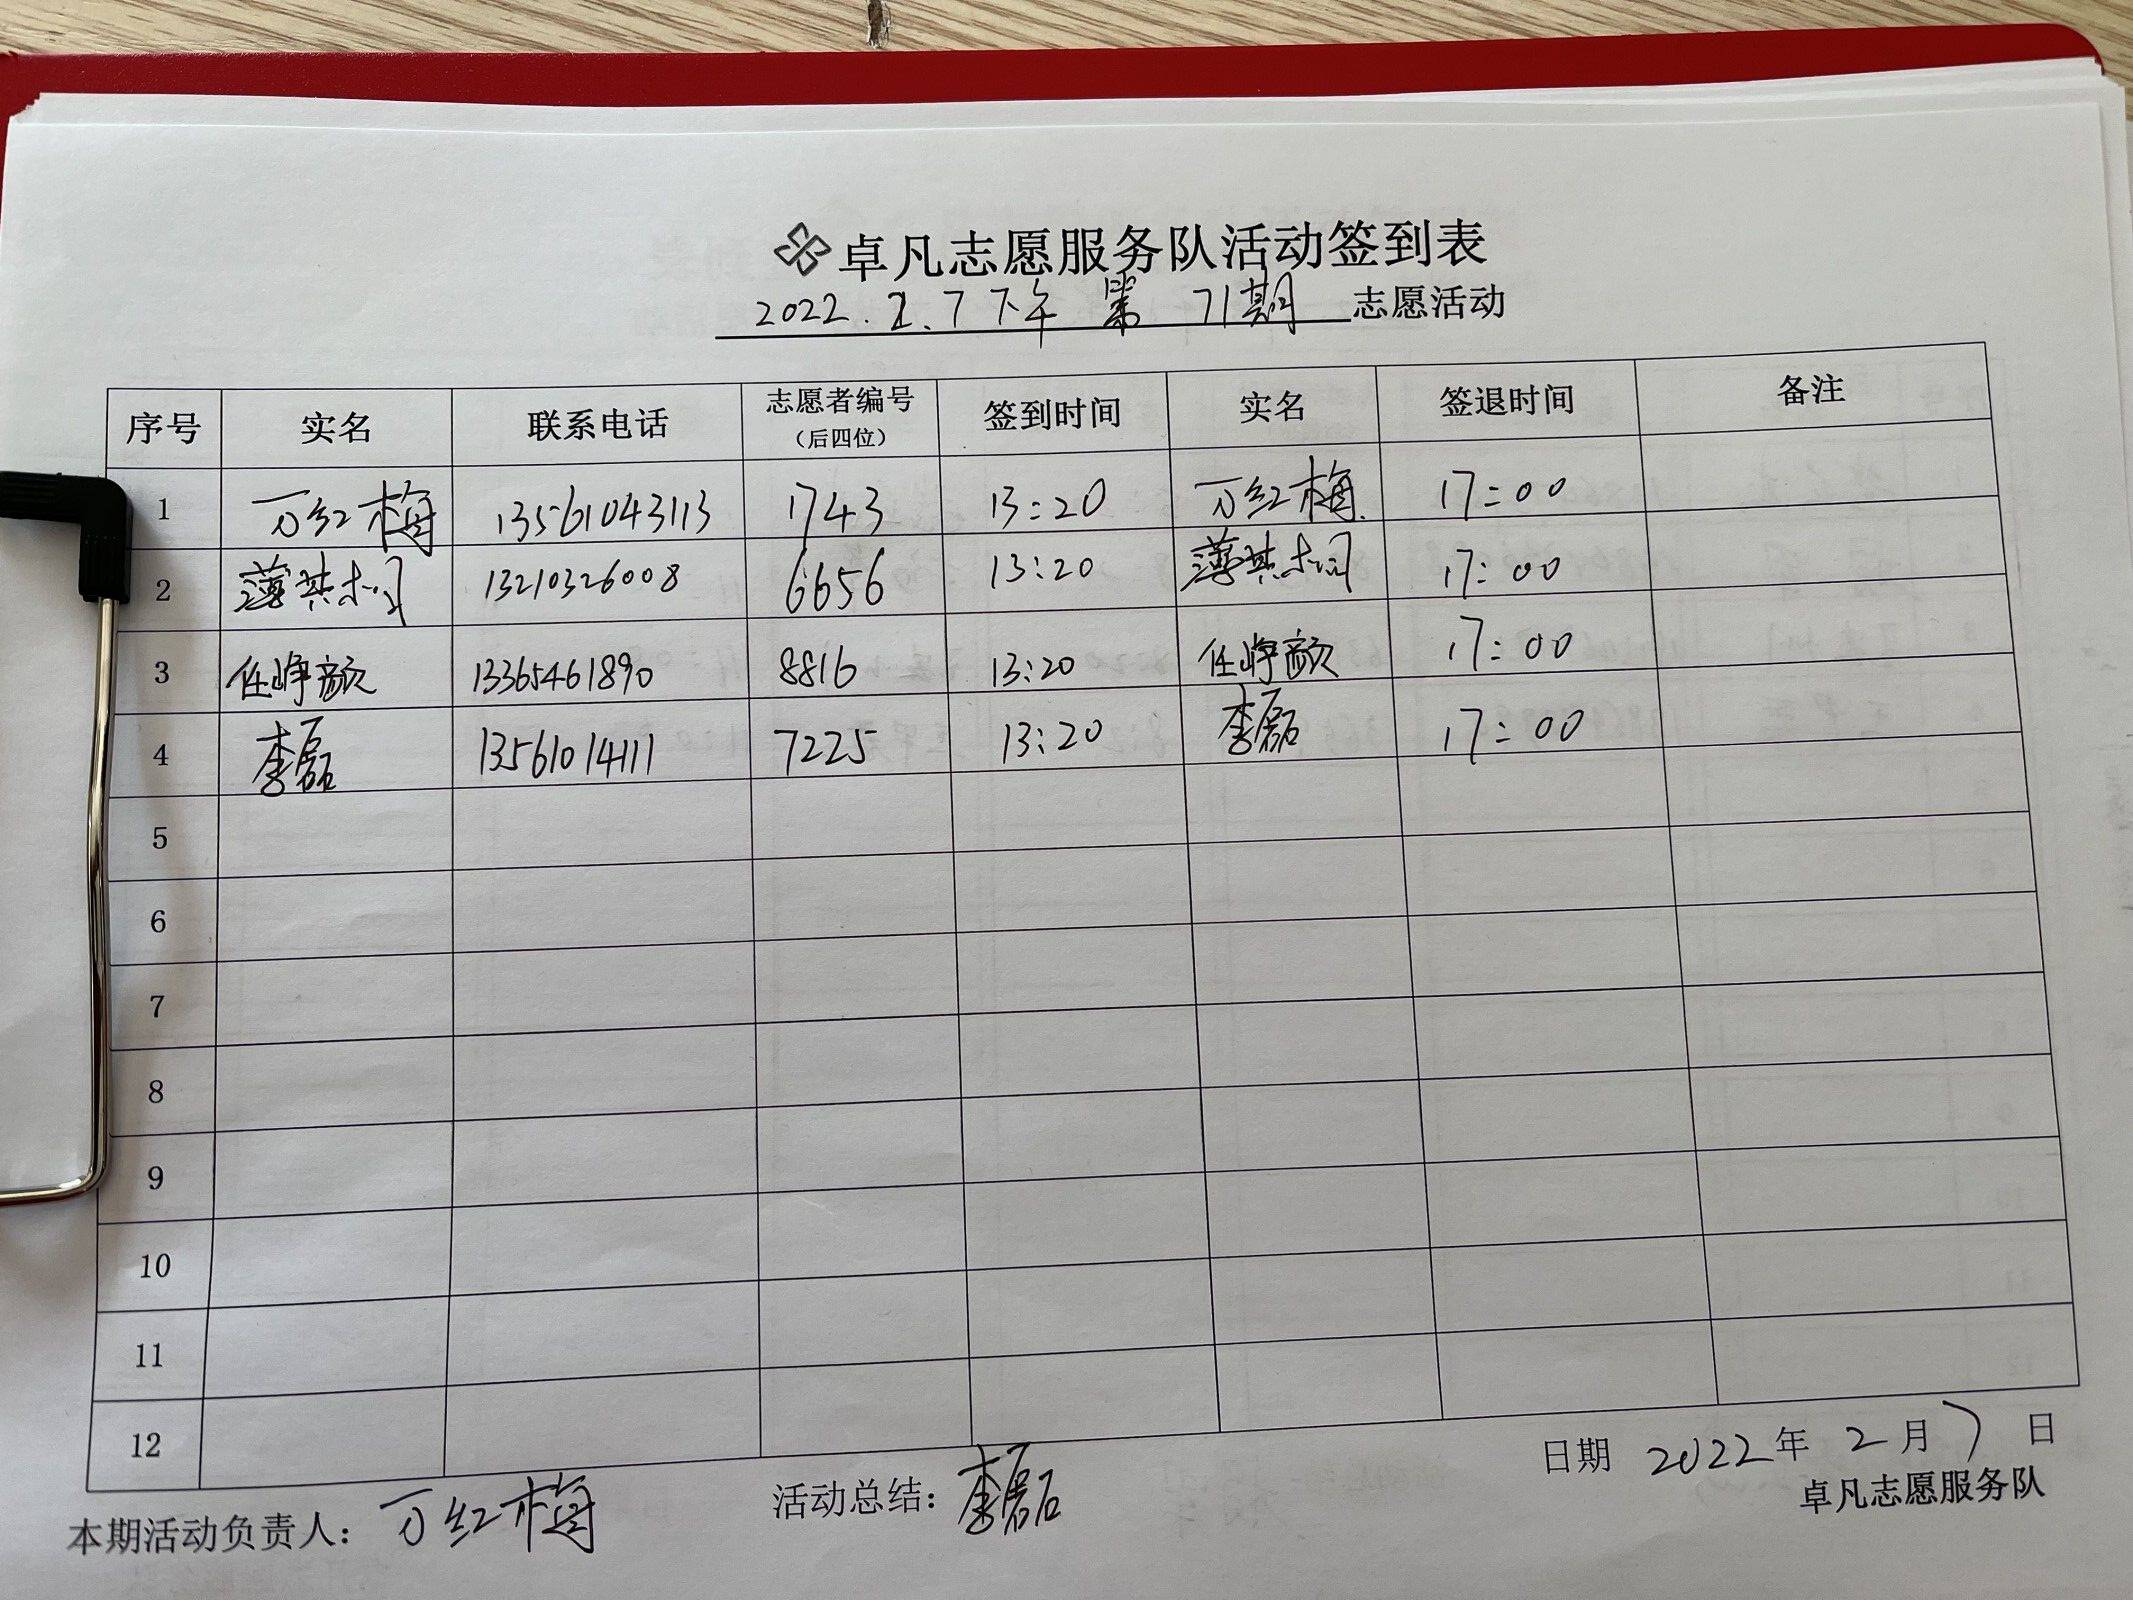 卓凡志愿服务队活动签到表
2022.2.7下午 第 71期 志愿活动
序号 实名 联系电话 志愿者编号（后四位） 签到时间 实名 签退时间 备注
1 万红梅 13561043113 1743 13:20 万红梅 17:00
2 薄其 13210326008 6656 13:20 薄其 17:00
3 任峥颜 13365461890 8816 13:20 任峥颜 17:00
4 李磊 13561014111 7225 13:20 李磊 17:00
5
6
7
8
9
10
11
12
日期 2022年 2月 7日
本期活动负责人：万红梅 活动总结：李磊 卓凡志愿服务队